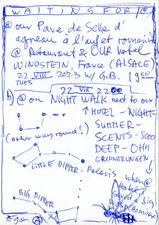 WAITING FOR
@ our Pavé de Selle d'
agneau à l'ail et romarin
@ Restaurant & OUR hotel
WINDSTEIN, France (ALSACE)
22 VIII 2023 W/ G.B. 19
TUES
22 VIII 22
b) @ on NIGHT WALK next to our
HOTEL - NIGHT-
(other way round!)
SUMMER-
SCENTS - SOOO
DEEP - OHH
LITTLE DIPPER - Polaris
when @
Hotel
BIG DIPPER